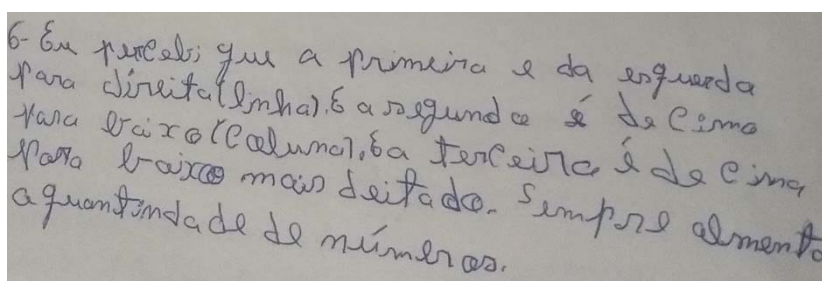 6- Eu percebi que a primeira e da esquerda
para direita(linha). E a segunda é de cima
para baixo(coluna). E a terceira é de cima
para baixo mais deitado. Sempre almento
a quantindade de números.